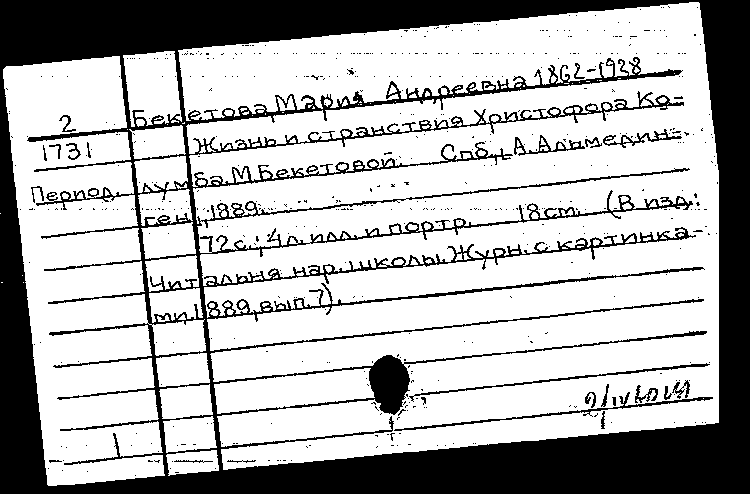 2 Бекетова, Мария Андреевна 1862-1928
1731 Жизнь и странствия Христофора Ко=
Период. лумба М. Бекетовой. Спб., А. Альмедин=
ген, 1889.
72 с.; 4 л. илл. и портр. 18 cm. (В изд.:
Читальня нар. школы. Журн. с картинка-
ми, 1889, вып. 7).
1